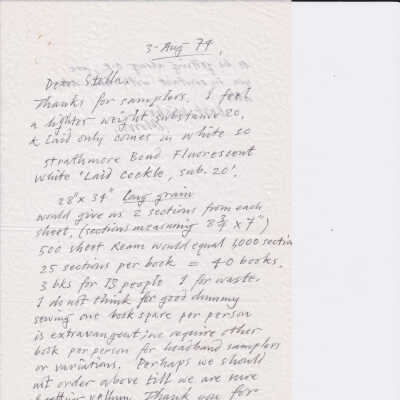 3 - Aug 74
Dear Stella
Thanks for samplers. I feel
a lighter weight substance 20,
& Laid only comes in white so
Strathmore Bond Fluorescent
White 'Laid Cockle, sub. 20'.
28" x 34" Long grain
would give us 2 sections from each
sheet. (sections measuring 8 3/4 x 7")
500 sheet Ream would equal 1,000 sections
25 sections per book = 40 books.
3 bks for 13 people 1 for waste.
I do not think for good dummy
sewing one book spare per person
is extravangent; we require other
book per person for headband samplers
or variations. Perhaps we should
not order above till we are sure
vellum. Thank you for